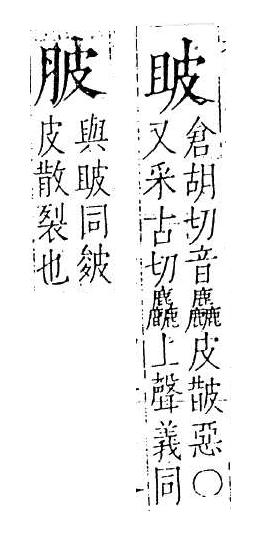 倉胡切音麤皮皵惡〇
又采古切麤上聲義同
䏢
與同皴
皮散裂也